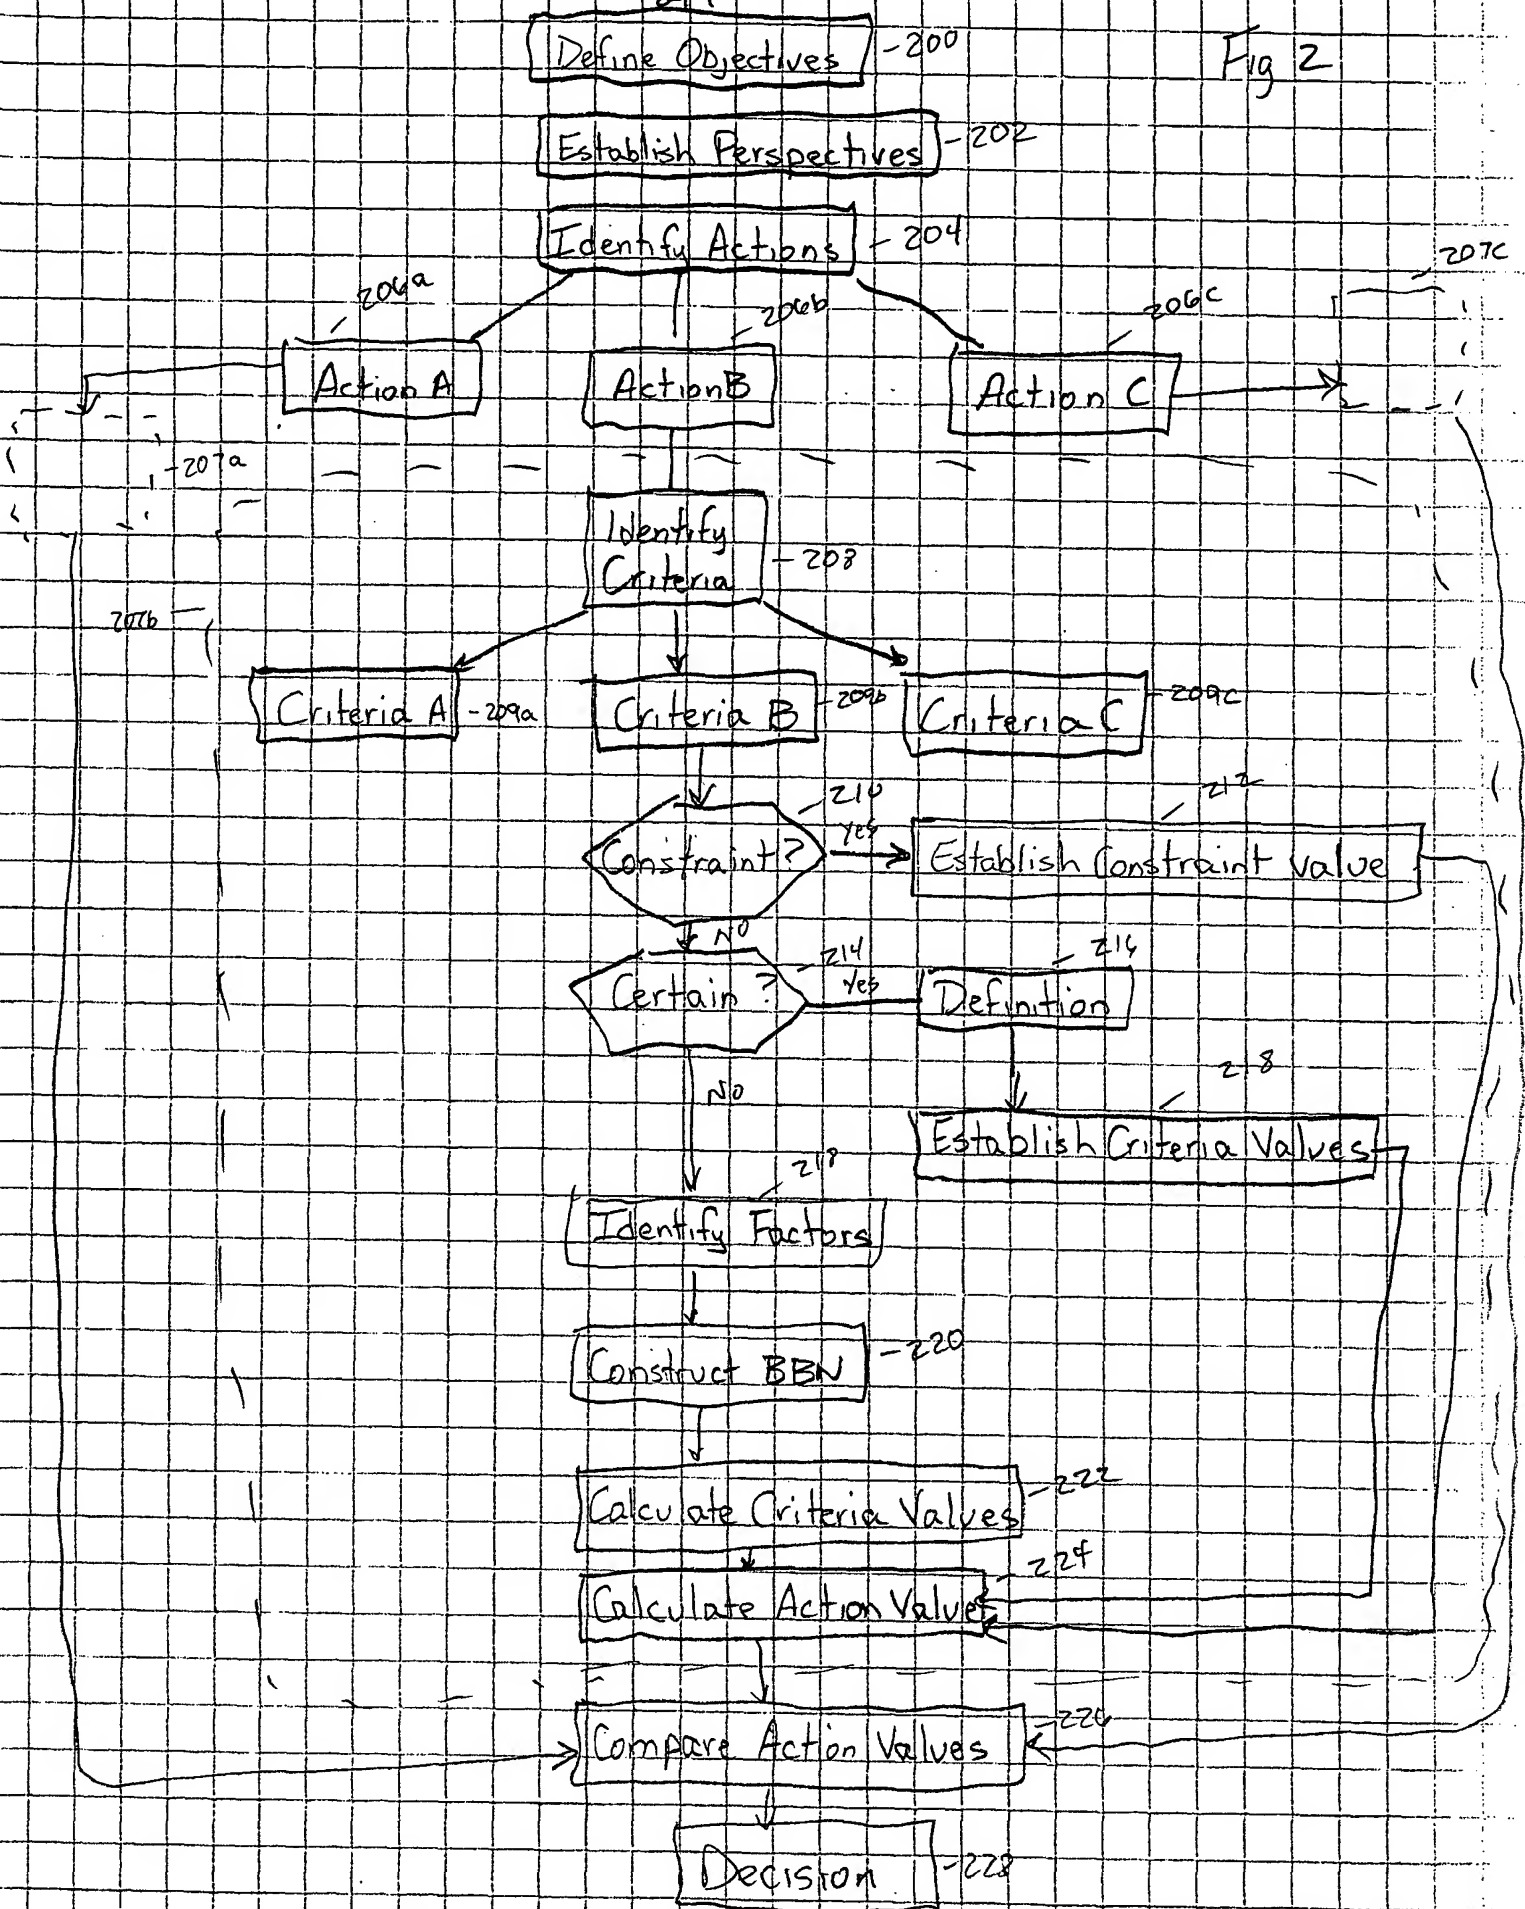 Define Objectives -200
Fig 2
Establish Perspectives -202
Identify Actions - 204
207c
206a
206b
206c
Action A
Action B
Action C
-207a
Identify
Criteria
- 208
207b
Criteria A -209a
Criteria B -209b
Criteria C -209c
-210
212
Constraint? yes
Establish Constraint value
NO
-214
216
Certain? yes
Definition
218
NO
Establish Criteria Values
218
Identify Factors
Construct BBN -220
-222
Calculate Criteria Values
-224
Calculate Action Value
-226
Compare Action Values
Decision -228